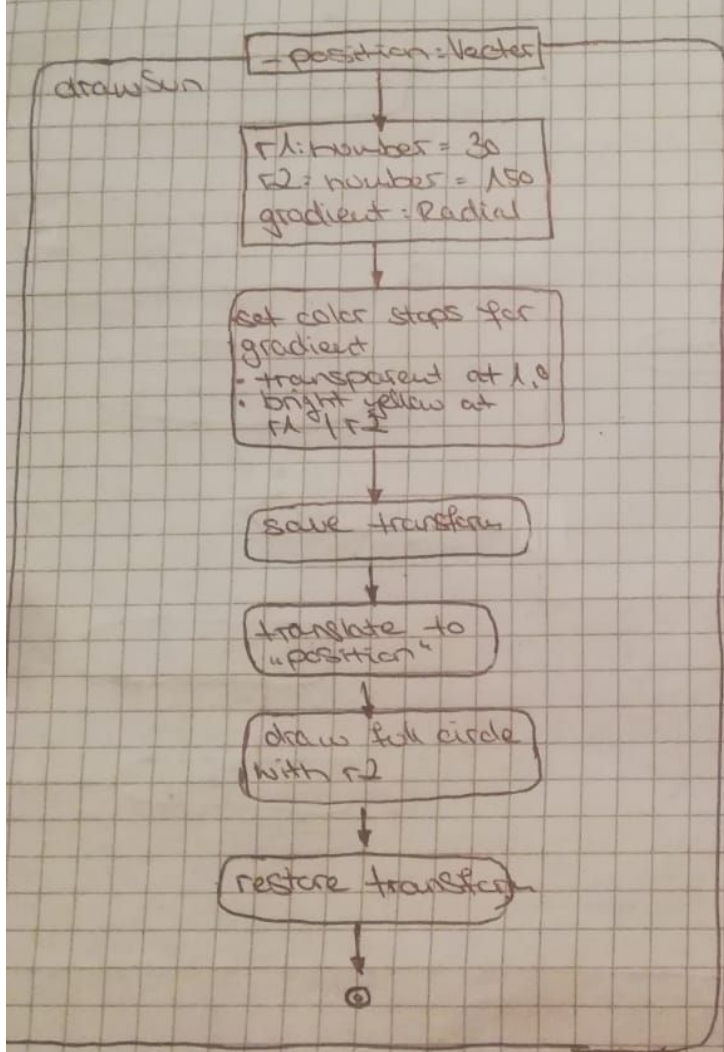 - position: Vector
drawSun
r1: number = 30
r2: number = 150
gradient: Radial
set color stops for
gradient
- transparent at 1,0
- bright yellow at
r1 / r2
save transform
translate to
"position"
draw full circle
with r2
restore transform